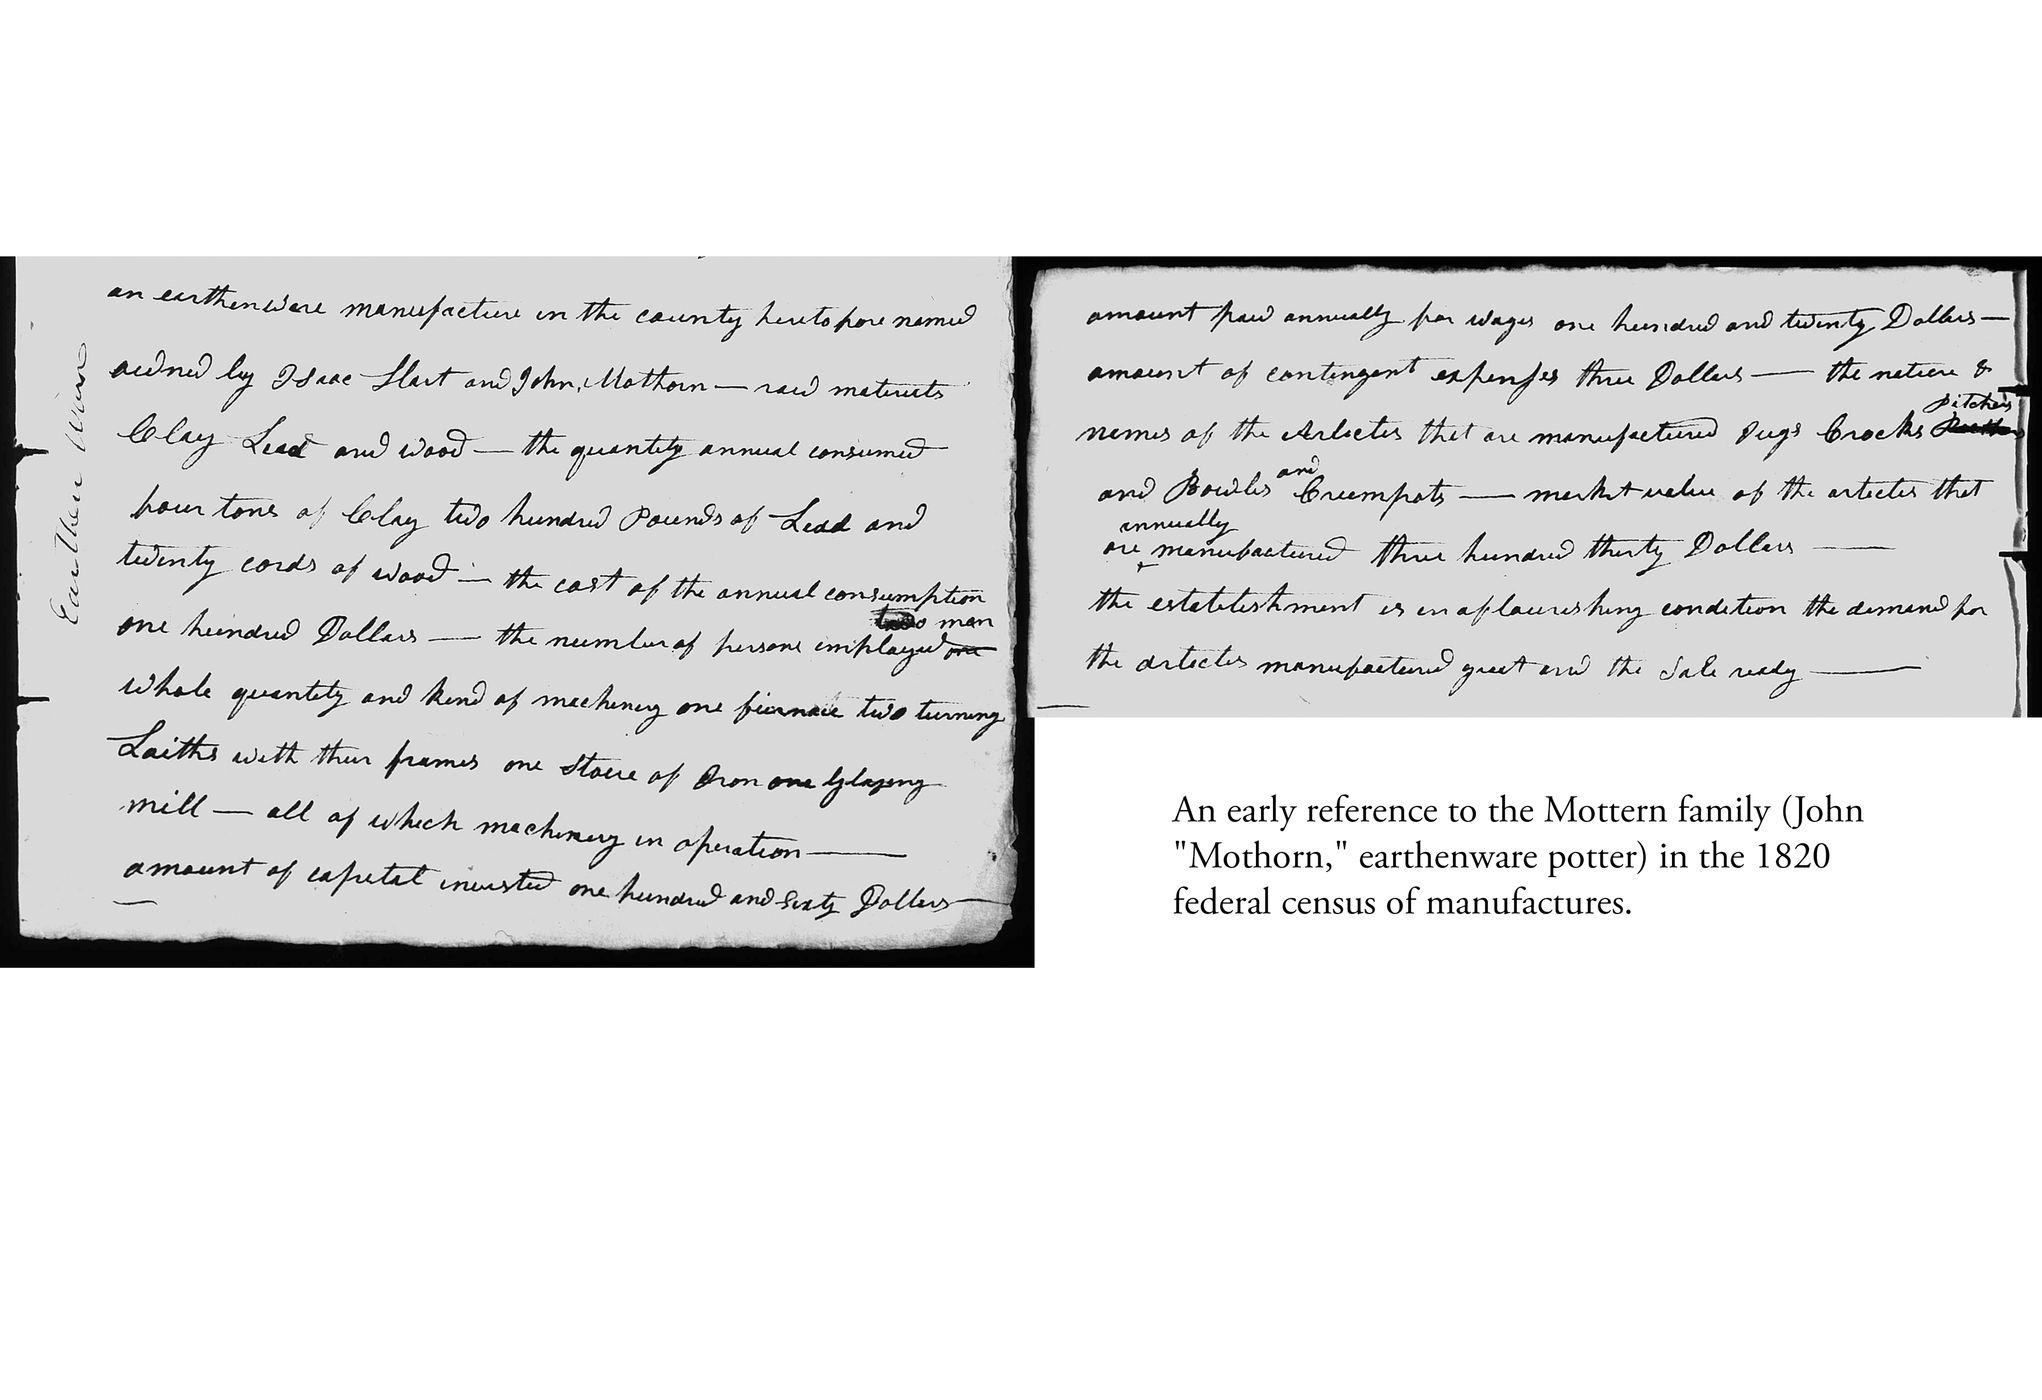 Earthen Ware
an earthenware manufacture in the county heretofore named
owned by Isaac Hart and John Mothorn — raw materials
Clay Lead and wood — the quantity annual consumed
four tons of Clay two hundred Pounds of Lead and
twenty cords of wood — the cost of the annual consumption
two men
one hundred Dollars — the number of persons employed one
whole quantity and kind of machinery one furnace two turning
Laiths with their frames one Stove of Iron one Glazeing
mill — all of which machinery in operation —
amount of capital invested one hundred and Sixty Dollars —
amount paid annually for wages one hundred and twenty Dollars —
amount of contingent expenses three Dollars — the nature &
Pitchers
names of the Articles that are manufactured Jugs Crocks
and
and Bowles Creempots — market value of the articles that
annually
are manufactured three hundred thirty Dollars —
the establishment is in a flourishing condition the demand for
the articles manufactured great and the Sale ready —
An early reference to the Mottern family (John
"Mothorn," earthenware potter) in the 1820
federal census of manufactures.